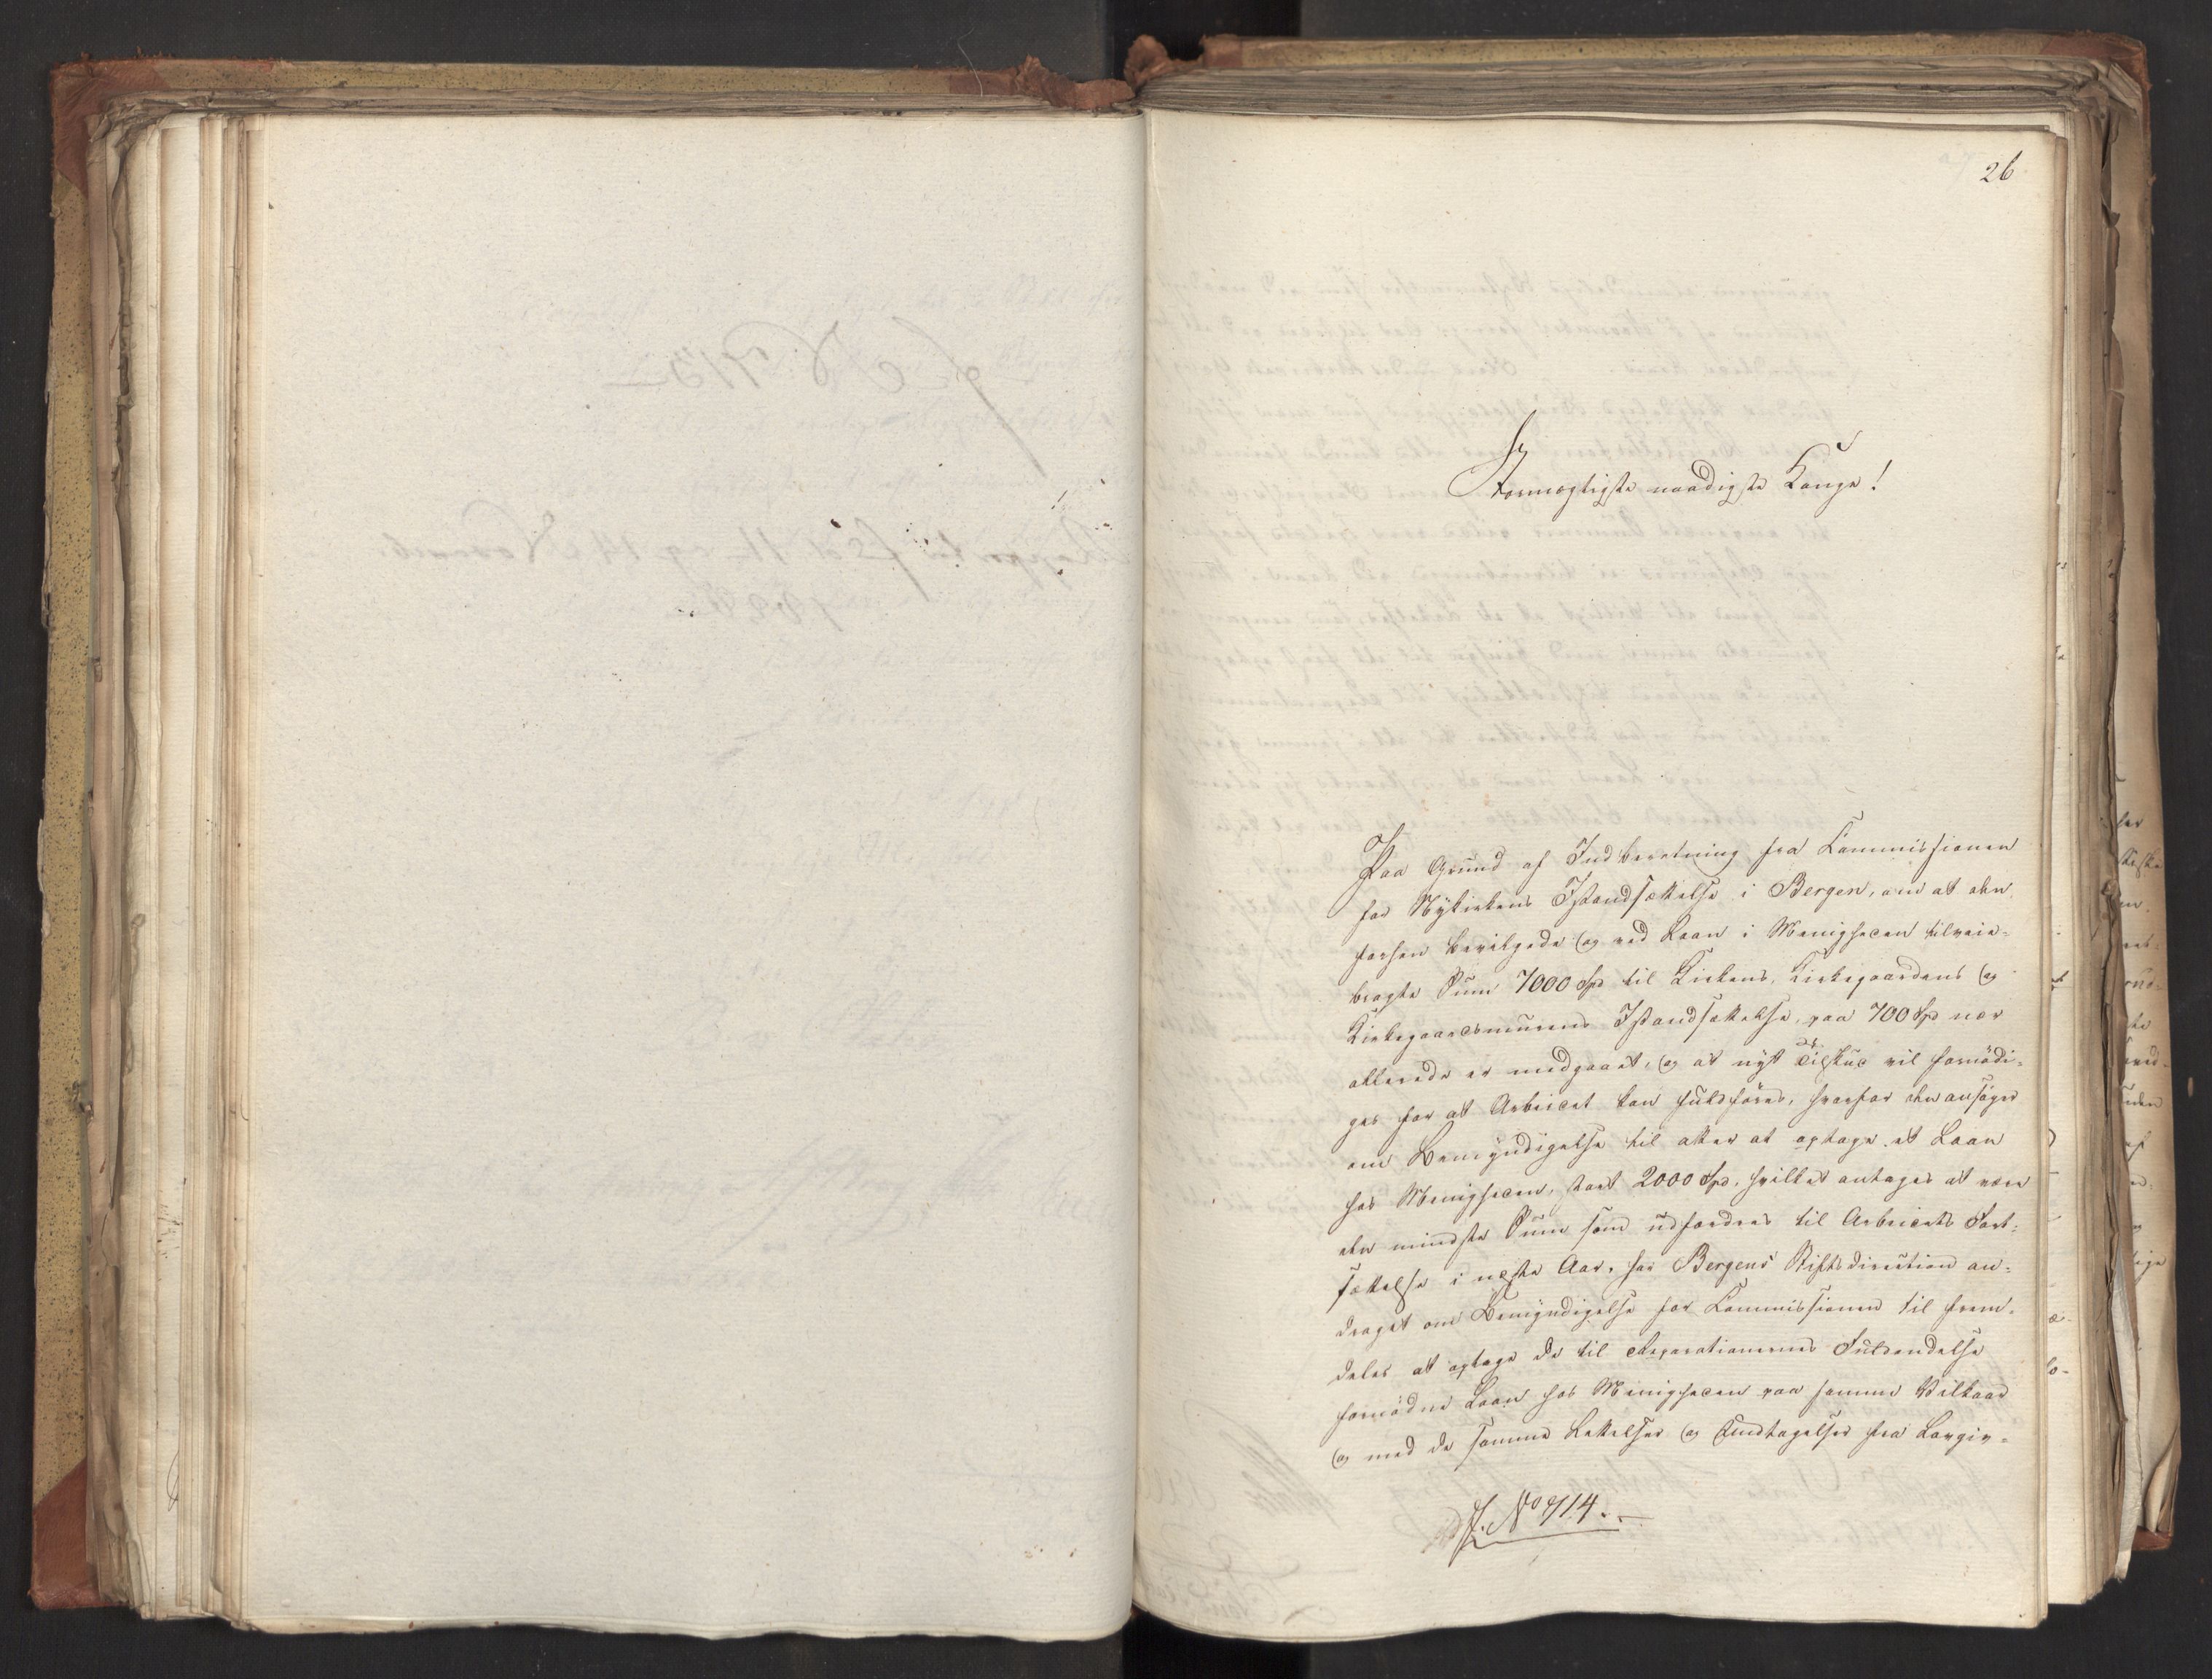 26
Stormægtigste naadigste Konge!
Paa Grund af Indberetning fra Commissionen
for Nykirkens Istandsættelse i Bergen, om at den
forhen bevilgede og ved Laan i Menigheden tilveie-
bragte Sum 7000 Spd til Kirkens, Kirkegaardens og
Kirkegaardsmurens Istandsættelse, paa 700 Spd nær
allerede er medgaaet, og at nyt Tilskud vil fornødi-
ges for at Arbeidet kan fuldføres, hvorfor den ansøger
om Bemyndigelse til atter at optage et Laan
hos Menigheden, stort 2000 Spd, hvilket antages at være
den mindste Sum som udfordres til Arbeidets Fort-
sættelse i næste Aar, har Bergens Stiftsdirection an-
draget om Bemyndigelse for Commissionen til frem-
deles at optage de til Reparationernes Fuldendelse
fornødne Laan hos Menigheden paa samme Vilkaar
og med de samme Lettelser og Undtagelser fra Lovgiv-
J. No 714.